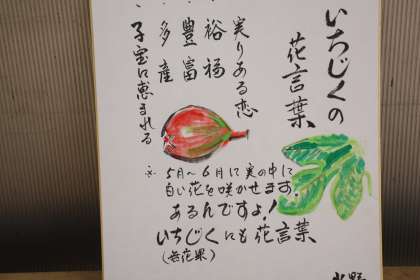 いちじくの
花言葉
実りある恋
・裕福
・豊富
・多産
・子宝に恵まれる
※ 5月～6月に実の中に
白い花を咲かせます。
あるんですよ!
いちじくにも花言葉
(無花果)
水野